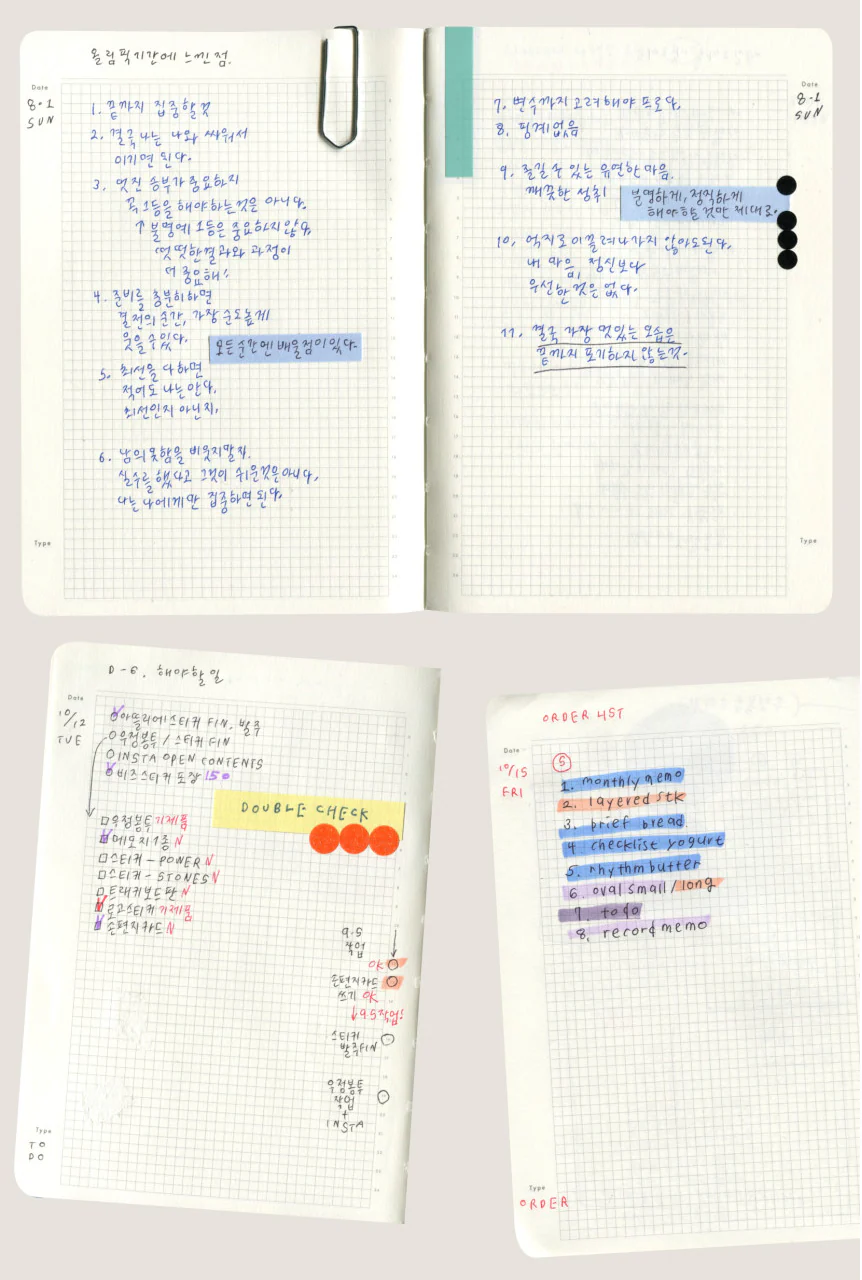 올림픽기간에 느낀점.
Date
8·1
SUN
1. 끝까지 집중할것
2. 결국 나는 나와 싸워서
이기면 된다.
3. 멋진 승부가 중요하지
꼭 1등을 해야하는것은 아니다.
↑ 불명예 1등은 중요하지 않다.
떳떳한결과와 과정이
더 중요해!
4. 준비를 충분히하면
결전의 순간, 가장 순도높게
웃을 수 있다.
모든순간엔 배울점이 있다.
5. 최선을 다하면
적어도 나는 안다.
최선인지 아닌지,
6. 남의 못함을 비웃지말자.
실수를 했다고 그것이 쉬운것은아니다,
나는 나에게만 집중하면 된다.
Type
Date
8-1
SUN
7. 변수까지 고려해야 프로다,
8. 핑계없음
9. 즐길 수 있는 유연한 마음.
깨끗한 성취
분명하게, 정직하게
해야할 것만 제대로.
10. 억지로 이끌려나가지 않아도된다,
내 마음, 정신보다
우선한 것은 없다.
11. 결국 가장 멋있는 모습은
끝까지 포기하지 않는것.
Type
D-6. 해야할일
Date
10/12
TUE
아뜰리에스티커 FIN. 발주
우정봉투 / 스티커 FIN
INSTA OPEN CONTENTS
비즈스티커 포장 150
DOUBLE CHECK
우정봉투 기제품
메모지 1종 N
스티커 - POWER N
스티커 - STONES N
트래커보드판 N
로고스티커 기제품
손편지카드 N
9.5
작업
OK
손편지카드
쓰기 OK
↓9.5작업!
스티커
발주FIN
우정봉투
작업
+
INSTA
Type
TO
DO
ORDER LIST
Date
10/15
FRI
⑤
1. monthly memo
2. layered stk
3. brief bread
4 checklist yogurt
5. rhythm butter
6. oval small / long
7. to do
8. record memo
Type
ORDER